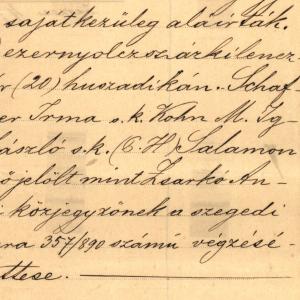 sajátkezűleg aláirták.
ezernyolczszázkilencz-
r (20) huszadikán. Schaf-
er Irma s. k. Kohn M. Ig-
lászló s. k. (C. H.) Salamon
őjelölt mint Zsarkó An-
közjegyzőnek a szegedi
ra 357/890 számú végzésé-
ttese.